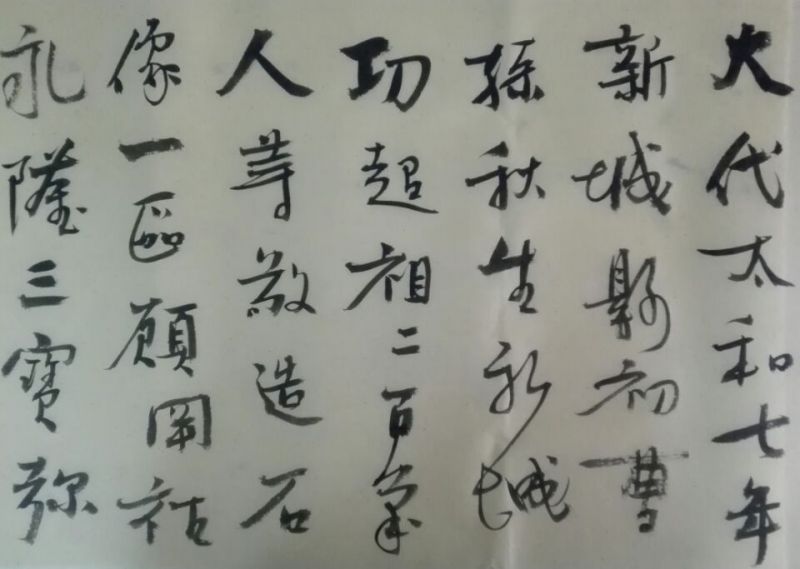 大代太和七年
新城縣初曹
孫秋生新城
功超祖二百
人等敬造石
像一區願罔祜
永隆三寶弥